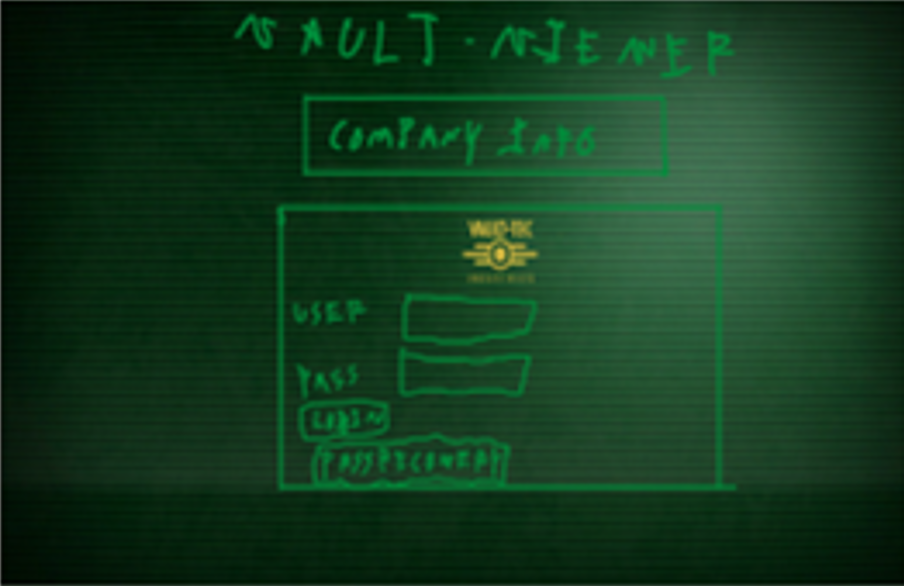 VAULT-VIEWER
COMPANY INFO
VAULT-TEC
INDUSTRIES
USER
PASS
LOGIN
PASSRECOVERY